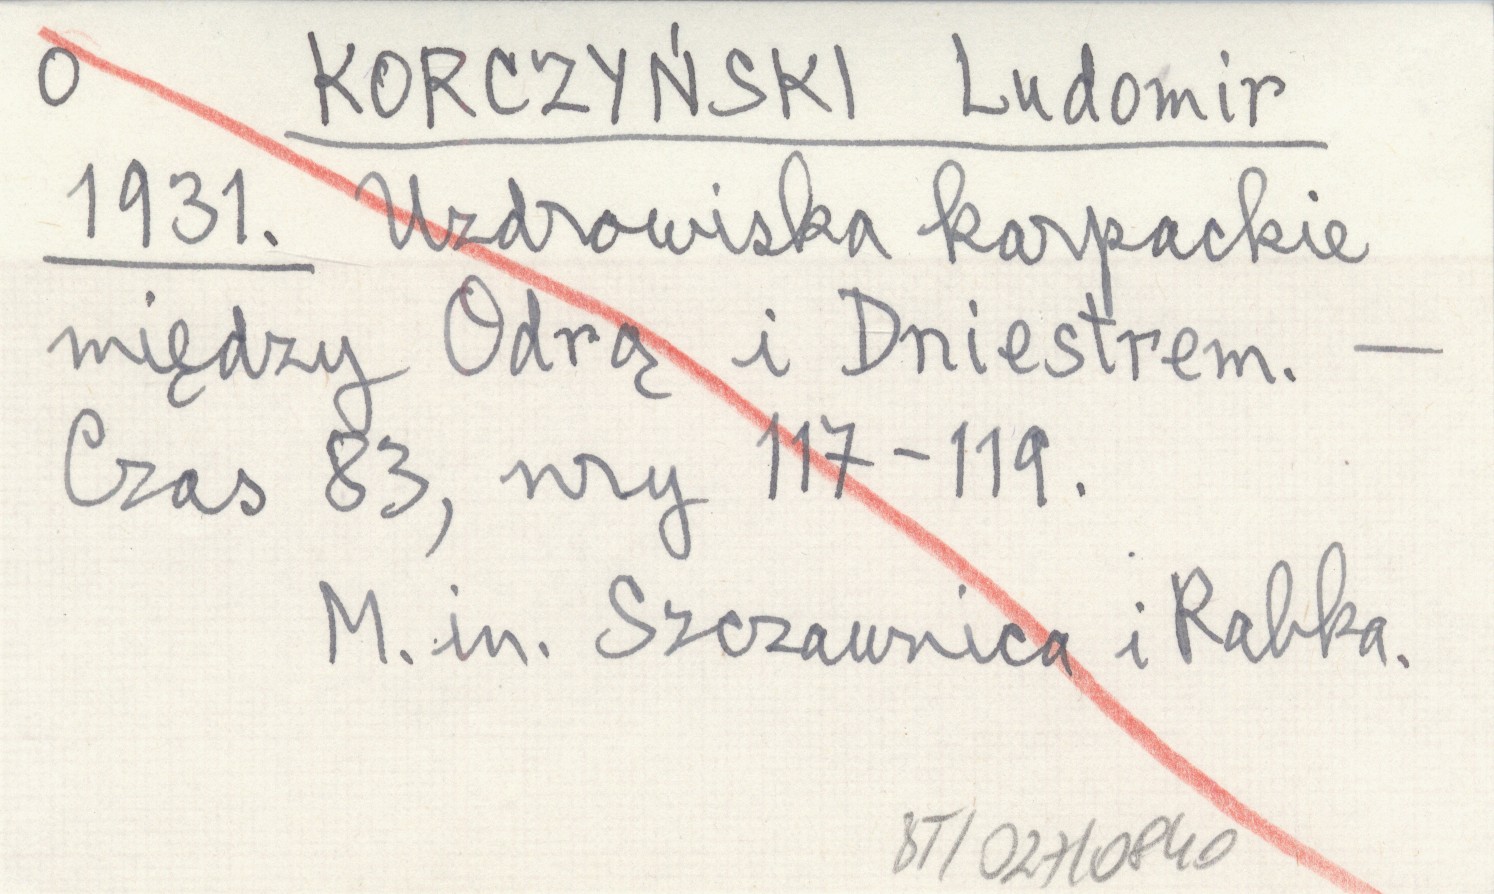 o KORCZYŃSKI Ludomir
1931. Uzdrowiska karpackie
między Odrą i Dniestrem. —
Czas 83, nry 117-119.
M. in. Szczawnica i Rabka.
BT/027/0840